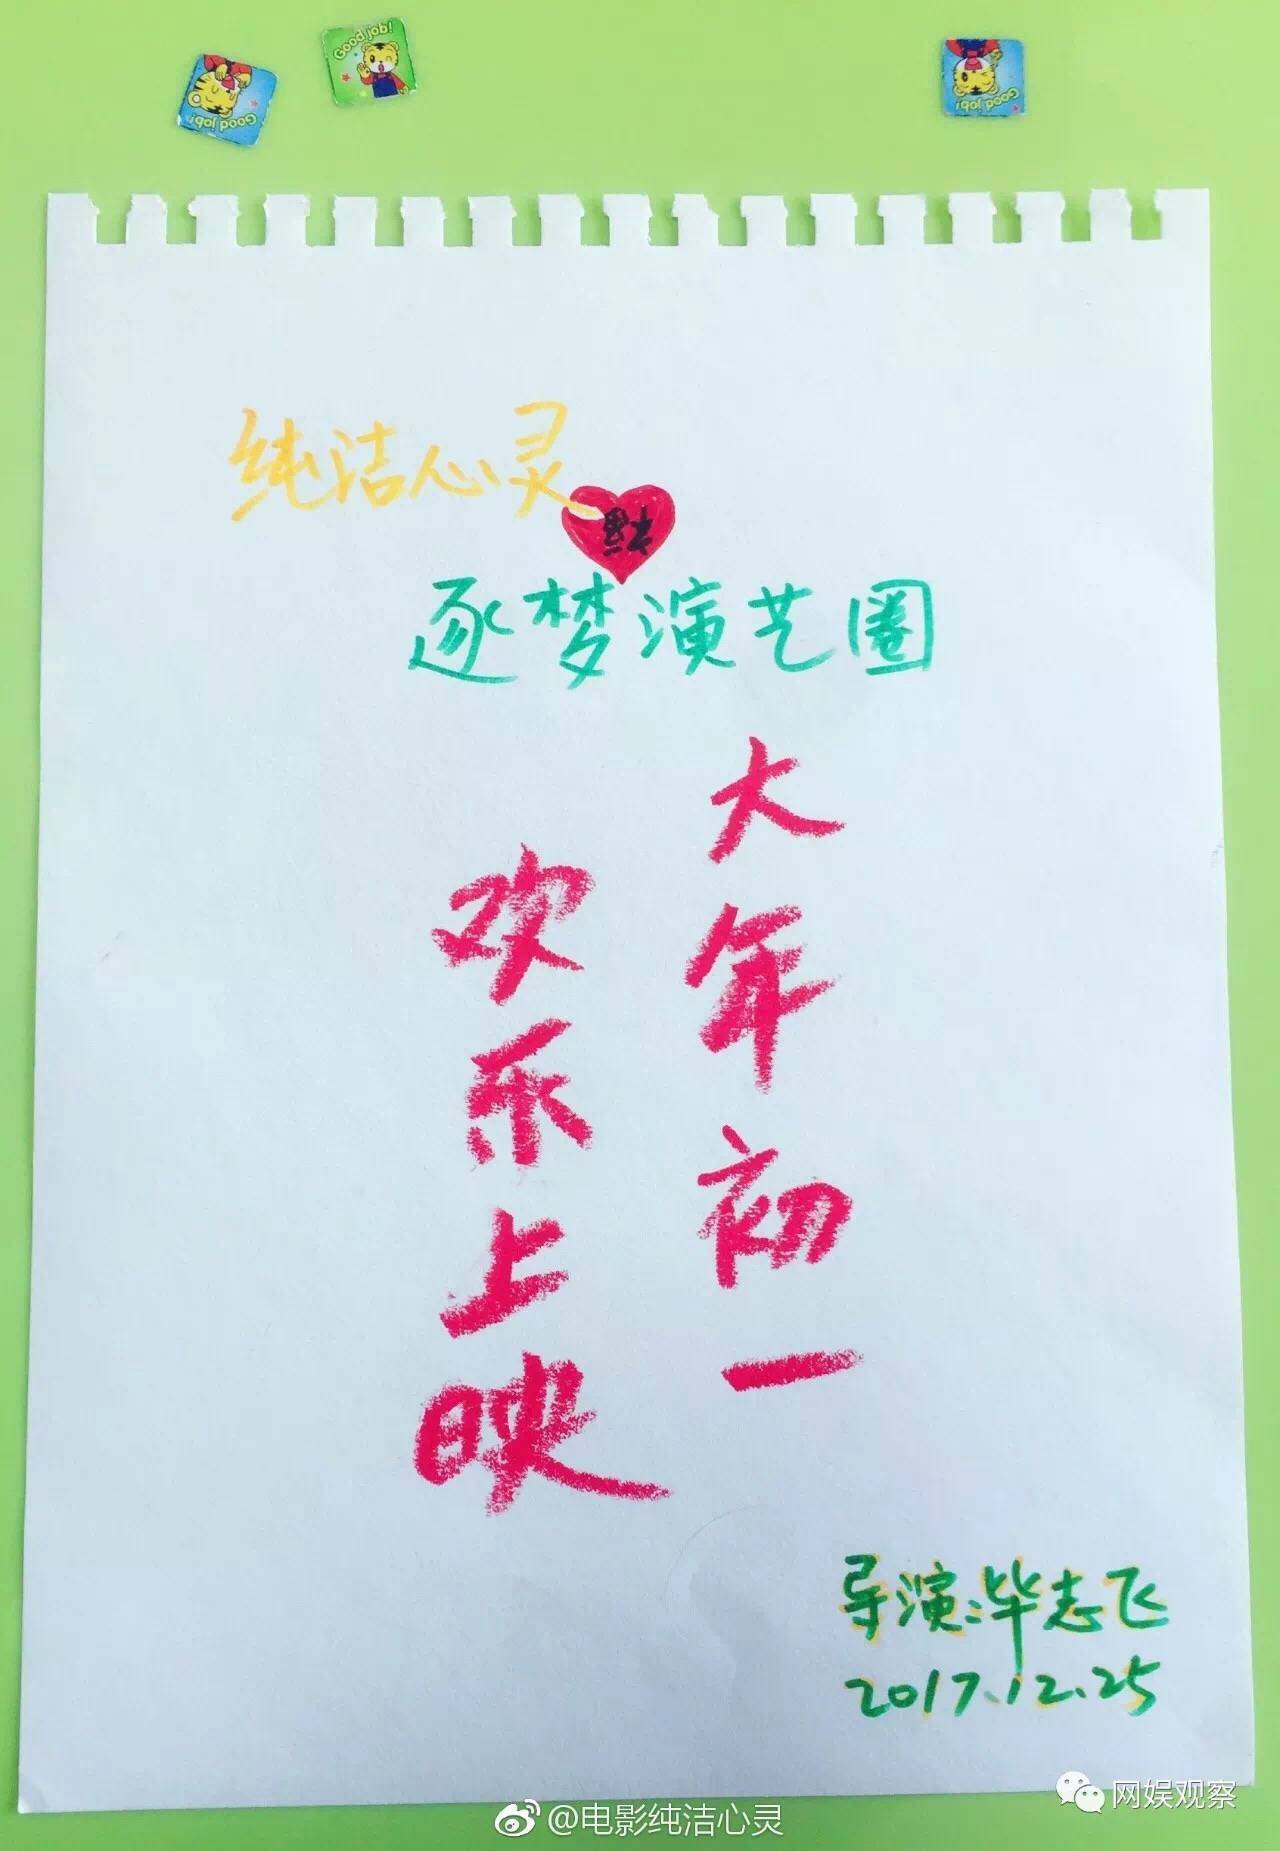 Good job!
Good job!
Good job!
纯洁心灵
福
逐梦演艺圈
大年初一
欢乐上映
导演:毕志飞
2017.12.25
网娱观察
@电影纯洁心灵